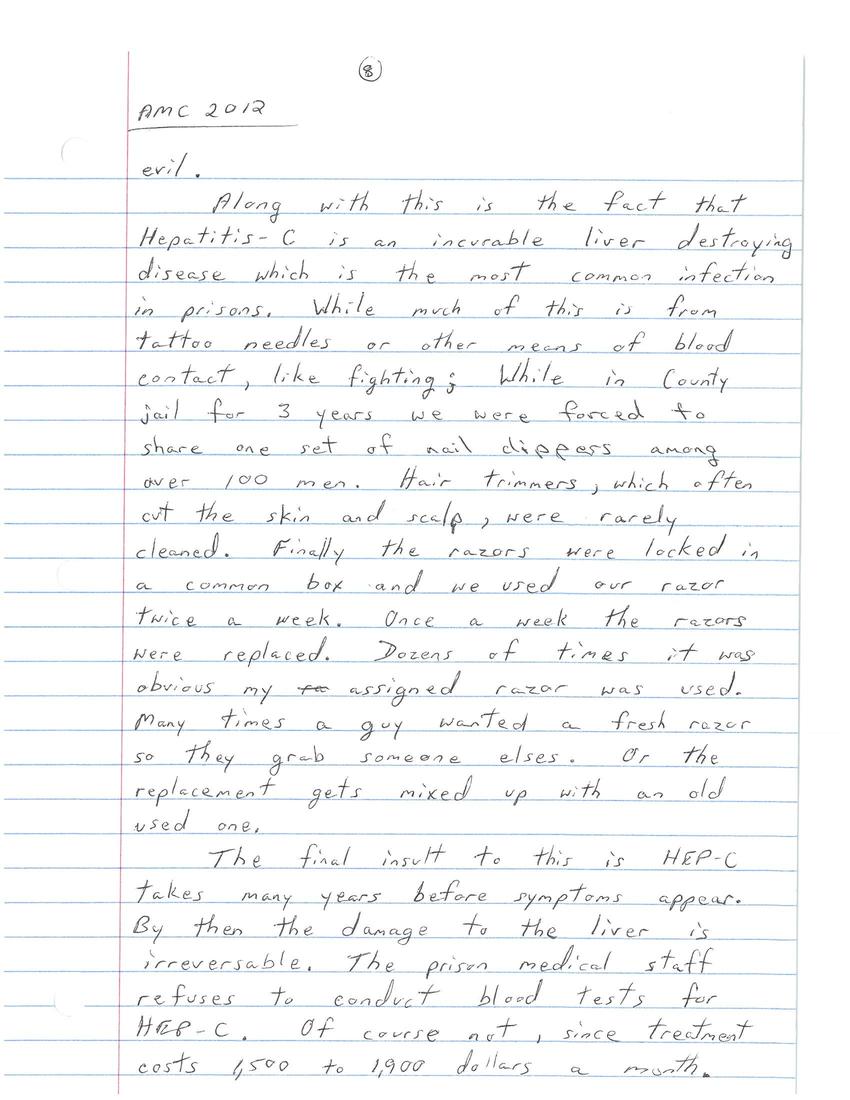 8
AMC 2012
evil.
Along with this is the fact that
Hepatitis-C is an incurable liver destroying
disease which is the most common infection
in prisons. While much of this is from
tattoo needles or other means of blood
contact, like fighting; While in County
jail for 3 years we were forced to
share one set of nail clippers among
over 100 men. Hair trimmers, which often
cut the skin and scalp, were rarely
cleaned. Finally the razors were locked in
a common box and we used our razor
twice a week. Once a week the razors
were replaced. Dozens of times it was
obvious my assigned razor was used.
Many times a guy wanted a fresh razor
so they grab someone elses. Or the
replacement gets mixed up with an old
used one.
The final insult to this is HEP-C
takes many years before symptoms appear.
By then the damage to the liver is
irreversable. The prison medical staff
refuses to conduct blood tests for
HEP-C. Of course not, since treatment
costs 1,500 to 1,900 dollars a month.